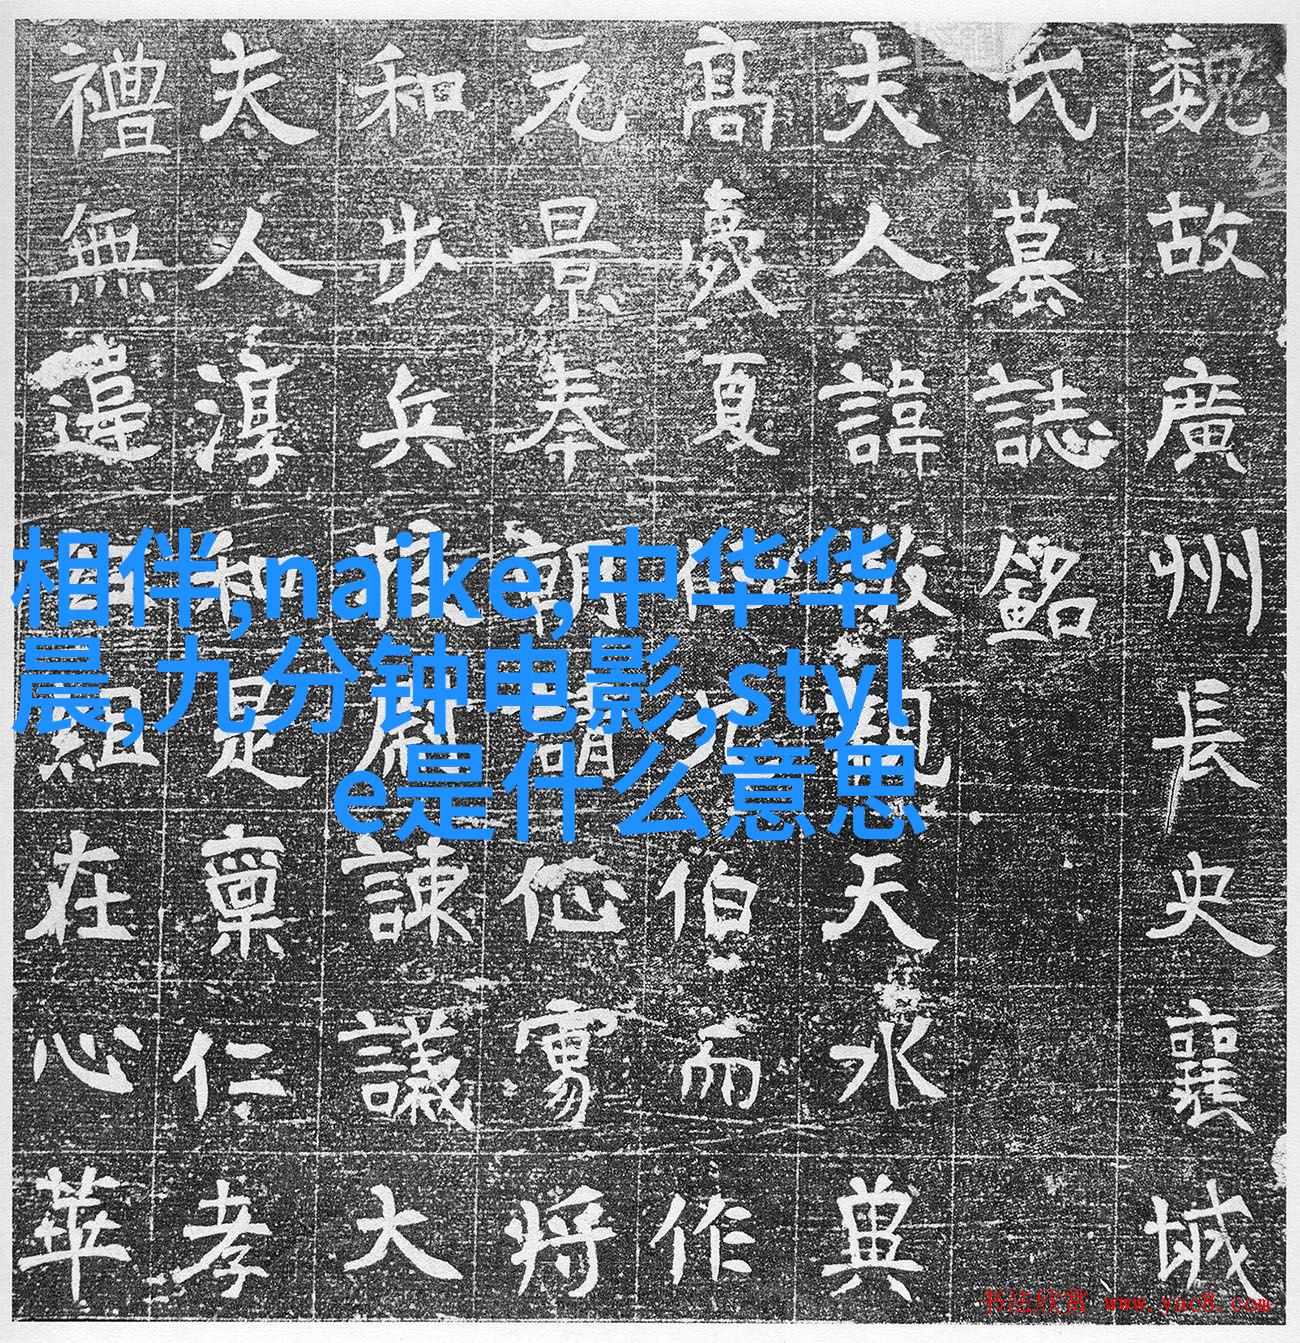 魏故廣州長史襄城
氏墓誌銘
夫人諱敬蘭天水典
高歲夏伯而作
元景奉朝請伈寧将
和步兵授尉諫議大
夫人淳和是稟仁孝
禮無違組在心華
相伴,naike,中华华
晨,九分钟电影,styl
e是什么意思
书法欣赏 www.yac8.com